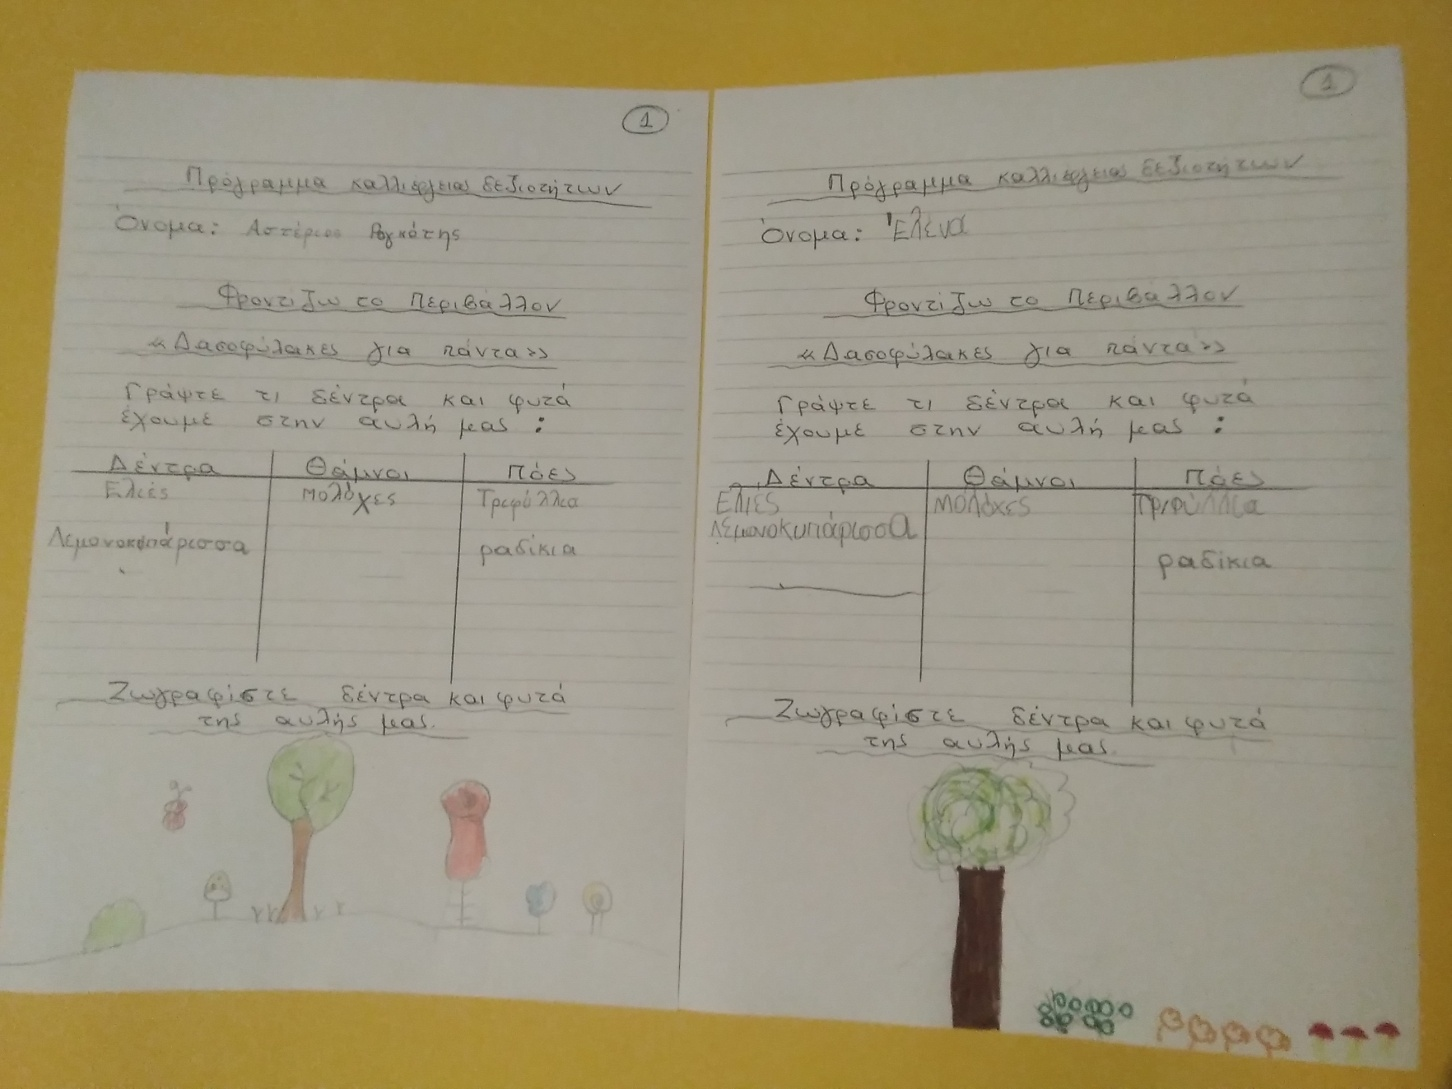 1
Πρόγραμμα καλλιέργειας δεξιοτήτων
Όνομα: Αστέριος
Φροντίζω το Περιβάλλον
«Δασοφύλακες για πάντα»
Γράψτε τι δέντρα και φυτά
έχουμε στην αυλή μας :
Δέντρα Θάμνοι Πόες
Ελιές Μολόχες Τριφύλλια
Λεμονοκυπάρισσα ραδίκια
Ζωγραφίστε δέντρα και φυτά
της αυλής μας.
1
Πρόγραμμα καλλιέργειας δεξιοτήτων
Όνομα: Έλενα
Φροντίζω το Περιβάλλον
«Δασοφύλακες για πάντα»
Γράψτε τι δέντρα και φυτά
έχουμε στην αυλή μας :
Δέντρα Θάμνοι Πόες
Ελιές Μολόχες Τριφύλλια
Λεμονοκυπάρισσα
ραδίκια
Ζωγραφίστε δέντρα και φυτά
της αυλής μας.